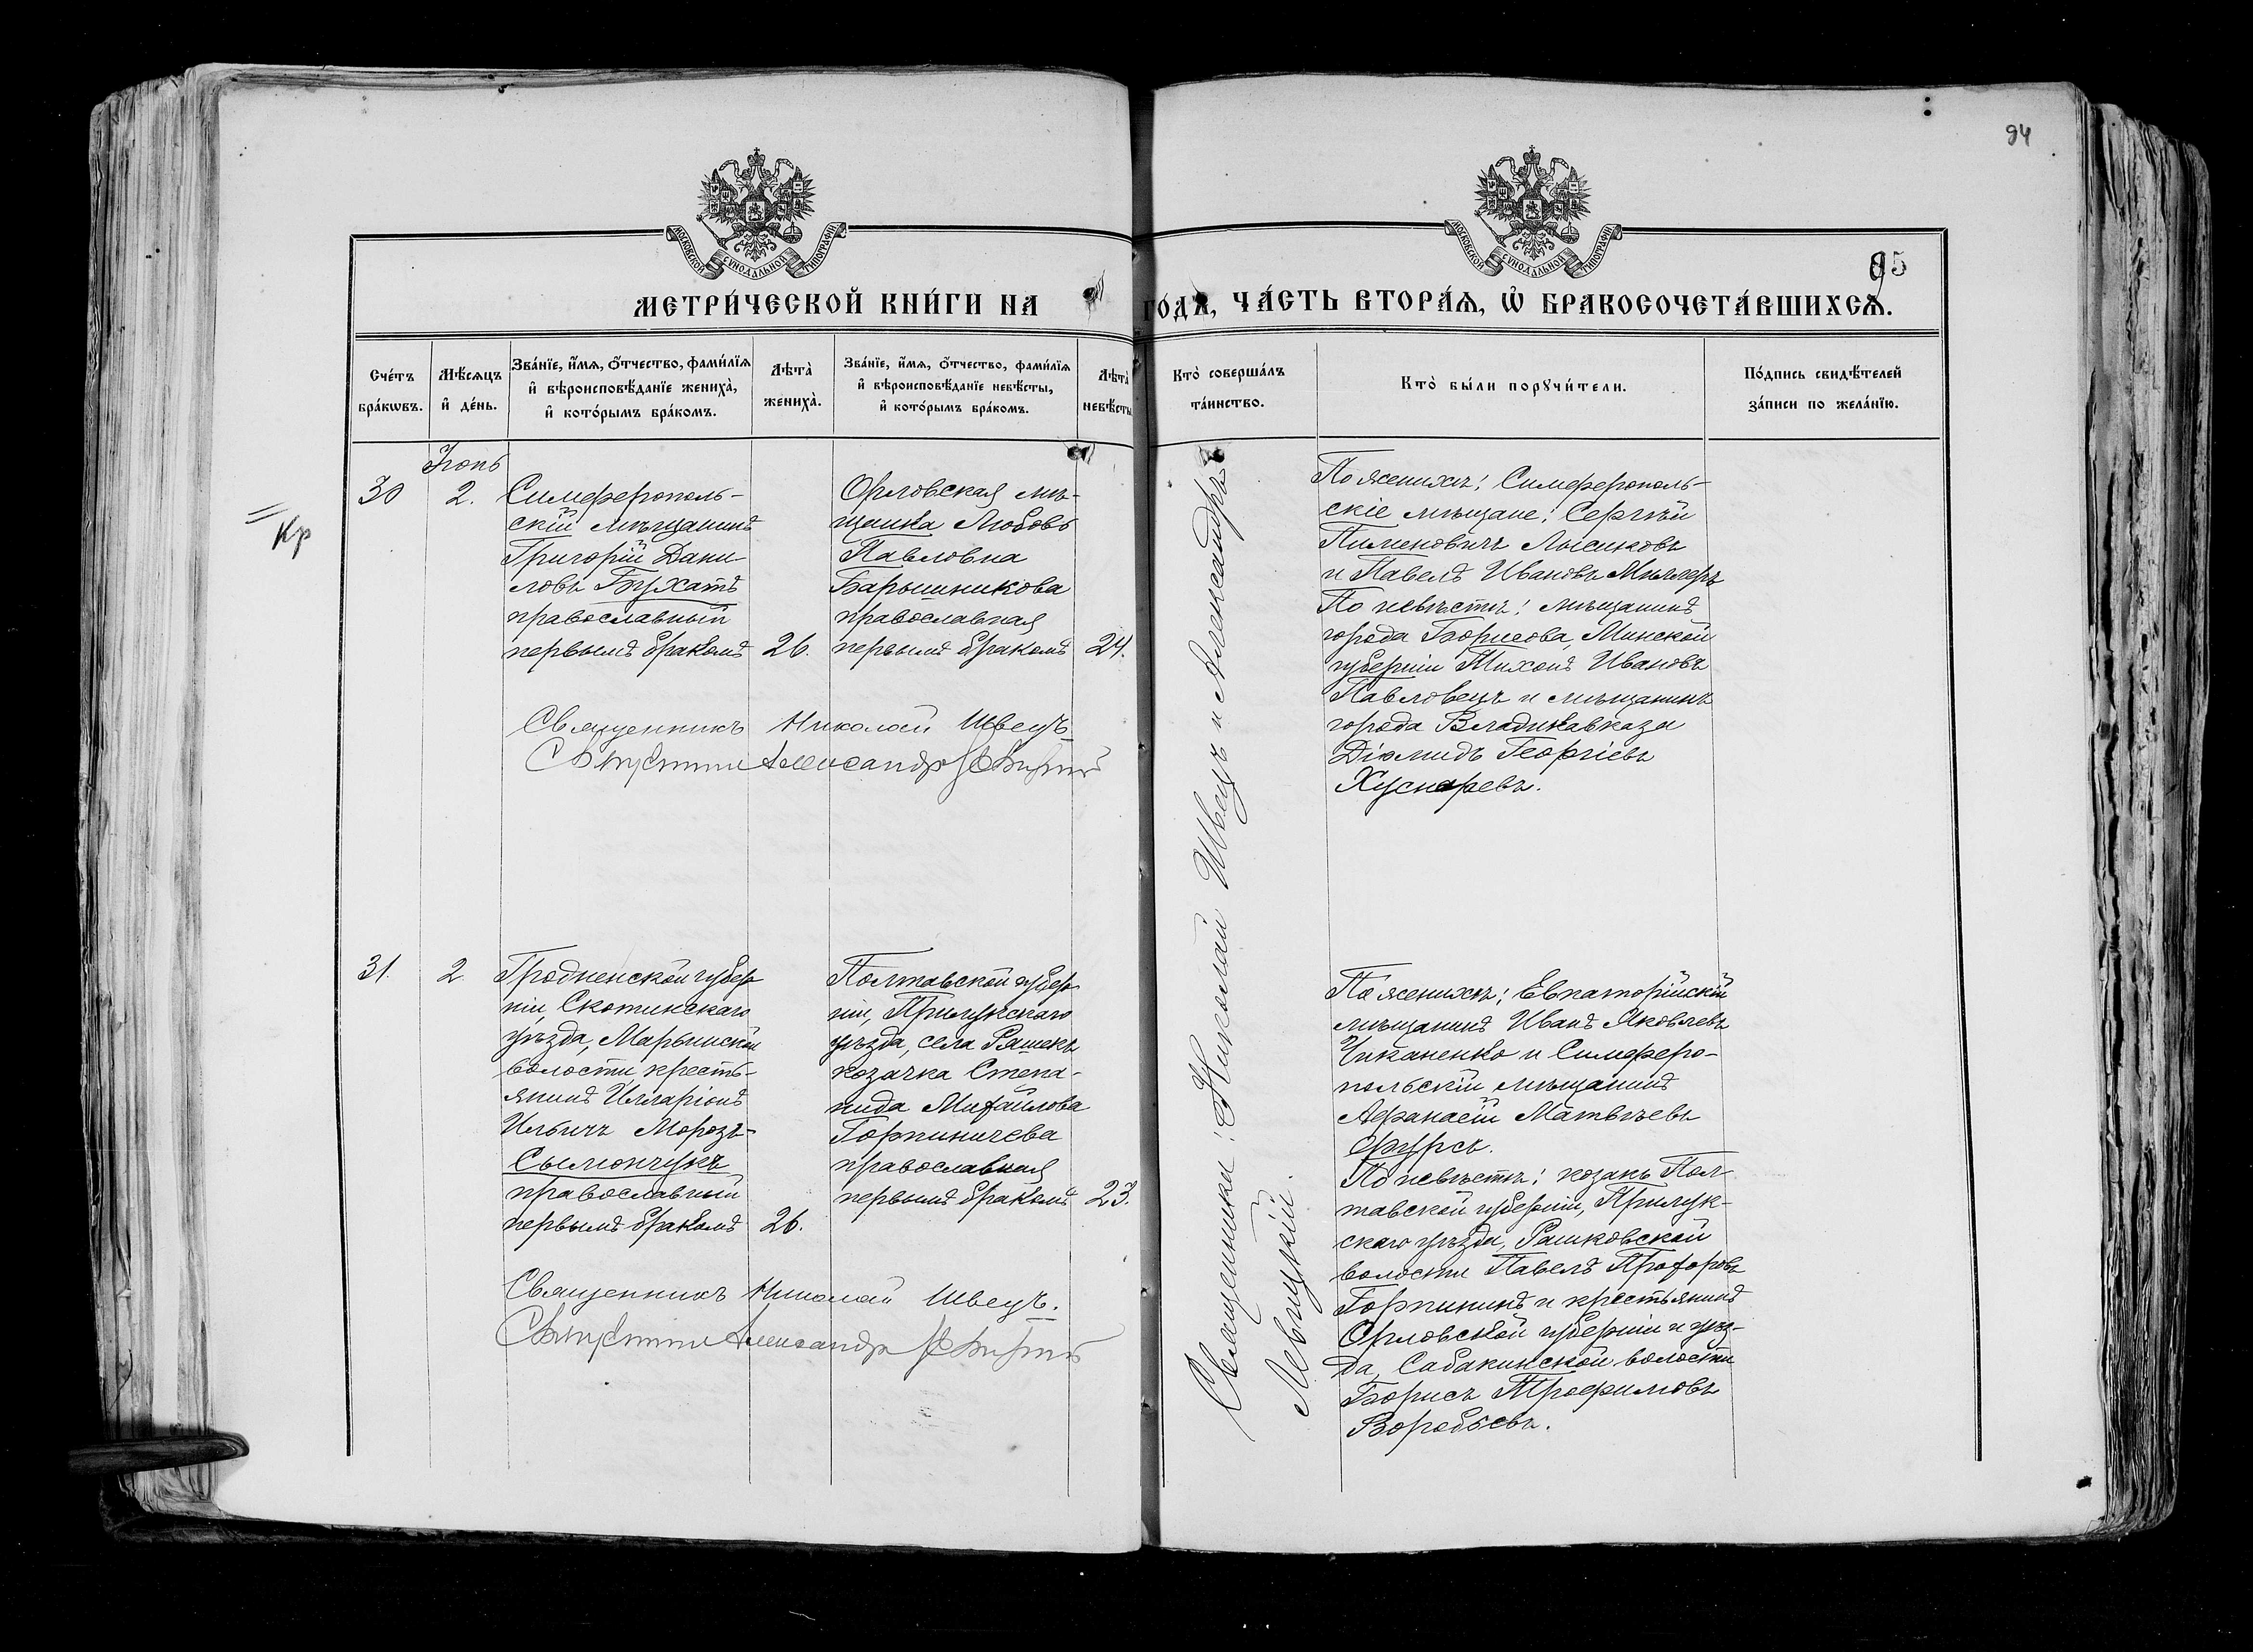 94
МОСКОВСКОЙ СѴНОДАЛЬНОЙ ТИПОГРАФІИ
МОСКОВСКОЙ СѴНОДАЛЬНОЙ ТИПОГРАФІИ
95
МЕТРИ́ЧЕСКОЙ КНИ́ГИ НА
ГО́ДЪ, ЧА́СТЬ ВТОРА́Ѧ, Ѽ БРАКОСОЧЕТА́ВШИХСѦ.
Сче́тъ
бра́кѡвъ.
Мѣ́сѧцъ
и҆ де́нь.
Зва́нїе, и҆́мѧ, ѻ҆́тчество, фами́лїѧ
и҆ вѣроисповѣ́данїе жениха̀,
и҆ кото́рымъ бра́комъ.
Лѣта̀
жениха̀.
Зва́нїе, и҆́мѧ, ѻ҆́тчество, фами́лїѧ
и҆ вѣроисповѣ́данїе невѣ́сты,
и҆ кото́рымъ бра́комъ.
Лѣта̀
невѣ́сты
Кто̀ соверша́лъ
та́инство.
Кто̀ бы́ли порꙋчи́тели.
По́дпись свидѣ́телей
за́писи по жела́нїю.
Кр
Іюнь
30
2.
Симферополь-
скій мѣщанинъ
Григорій Дани-
ловъ Бухатъ
православный
первымъ бракомъ
26.
Орловская мѣ-
щанка Любовь
Павловна
Барышникова
православная
первымъ бракомъ
24.
Священникъ Николай Швецъ
Александръ
Священники: Николай Швецъ и Александръ
Левицкій.
По женихѣ: Симферополь-
скіе мѣщане: Сергѣй
Пименовичъ Лысиковъ
и Павелъ Ивановъ Миллеръ
По невѣстѣ: мѣщанинъ
города Борисова, Минской
губерніи Тихонъ Ивановъ
Павловецъ и мѣщанинъ
города Владикавказа
Діомидъ Георгіевъ
Хуснаревъ.
31.
2
Гродненской губер
ніи,
уѣзда, Марьинской
волости кресть-
янинъ Илларіонъ
Ильичъ Морозъ-
Сымончукъ
православный
первымъ бракомъ
26.
Полтавской губер
ніи, Прилукскаго
уѣзда, села Рашекъ
козачка Степа-
нида Михайлова
Горпиничева
православная
первымъ бракомъ
23.
Священникъ Николай Швецъ.
Александръ
По женихѣ: Евпаторійскій
мѣщанинъ Иванъ Яковлевъ
Чиканенко и Симферо-
польскій мѣщанинъ
Афанасій Матвѣевъ
Фурсъ.
По невѣстѣ: козакъ Пол-
тавской губерніи, Прилук-
скаго уѣзда, Рашковской
волости Павелъ Прохоровъ
Горпининъ и крестьянинъ
Орловской губерніи и уѣз-
да, Сабакинской волости
Борисъ Трофимовъ
Воробьевъ.